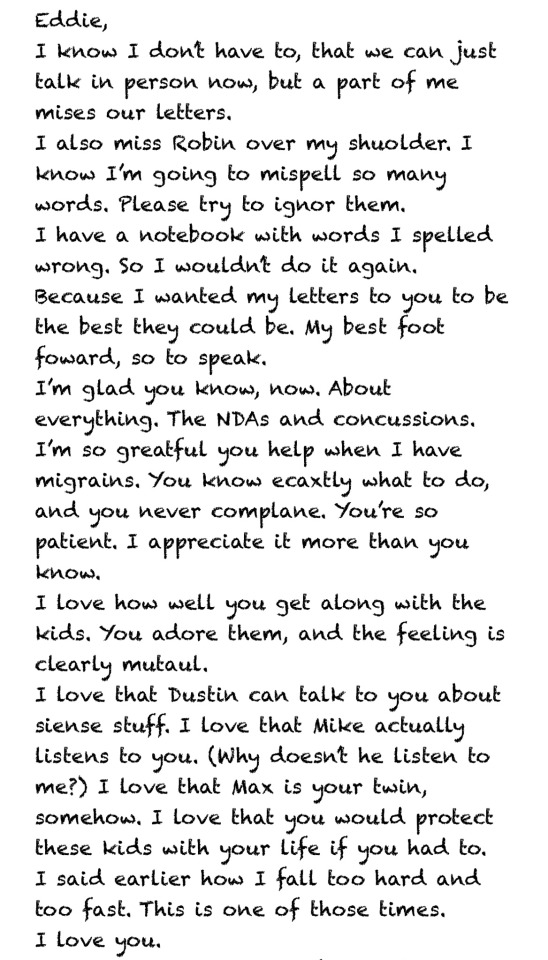 Eddie,
I know I don't have to, that we can just
talk in person now, but a part of me
mises our letters.
I also miss Robin over my shuolder. I
know I'm going to mispell so many
words. Please try to ignor them.
I have a notebook with words I spelled
wrong. So I wouldn't do it again.
Because I wanted my letters to you to be
the best they could be. My best foot
foward, so to speak.
I'm glad you know, now. About
everything. The NDAs and concussions.
I'm so greatful you help when I have
migrains. You know ecaxtly what to do,
and you never complane. You're so
patient. I appreciate it more than you
know.
I love how well you get along with the
kids. You adore them, and the feeling is
clearly mutaul.
I love that Dustin can talk to you about
siense stuff. I love that Mike actually
listens to you. (Why doesn't he listen to
me?) I love that Max is your twin,
somehow. I love that you would protect
these kids with your life if you had to.
I said earlier how I fall too hard and
too fast. This is one of those times.
I love you.